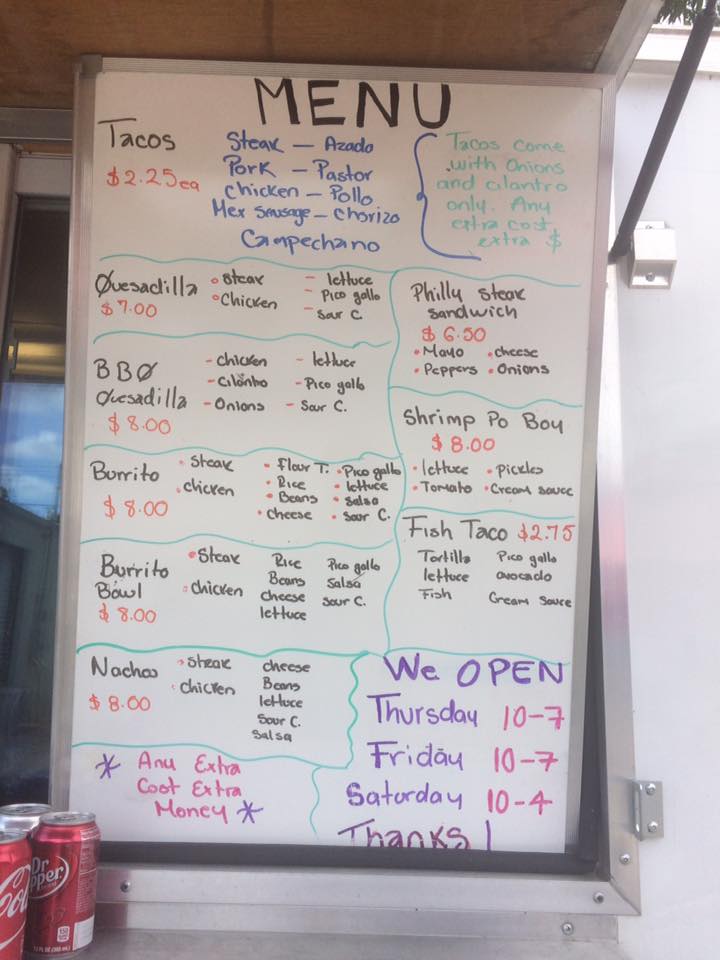 MENU
Tacos
$2.25ea
Steak - Azado
Pork - Pastor
chicken - Pollo
Mex Sausage - Chorizo
Campechano
Tacos come
with Onions
and cilantro
only. Any
extra cost
extra $
Quesadilla
$7.00
Steak
Chicken
- lettuce
- Pico gallo
- Sour C.
BBQ
Quesadilla
$8.00
- chicken
- Cilantro
- Onions
- lettuce
- Pico gallo
- Sour C.
Burrito
$8.00
Steak
chicken
Flour T.
Rice
Beans
cheese
Pico gallo
lettuce
Salsa
Sour C.
Burrito
Bowl
$8.00
Steak
chicken
Rice
Beans
cheese
lettuce
Pico gallo
Salsa
Sour C.
Nachos
$8.00
Steak
chicken
cheese
Beans
lettuce
Sour C.
Salsa
Philly Steak
Sandwich
$6.50
Mayo
Peppers
cheese
Onions
Shrimp Po Boy
$8.00
lettuce
Tomato
Pickles
Cream sauce
Fish Taco $2.75
Tortilla
lettuce
Fish
Pico gallo
avocado
Cream Sauce
We OPEN
Thursday 10-7
Friday 10-7
Saturday 10-4
Thanks!
* Any Extra
Cost Extra
Money *
Dr
Pepper